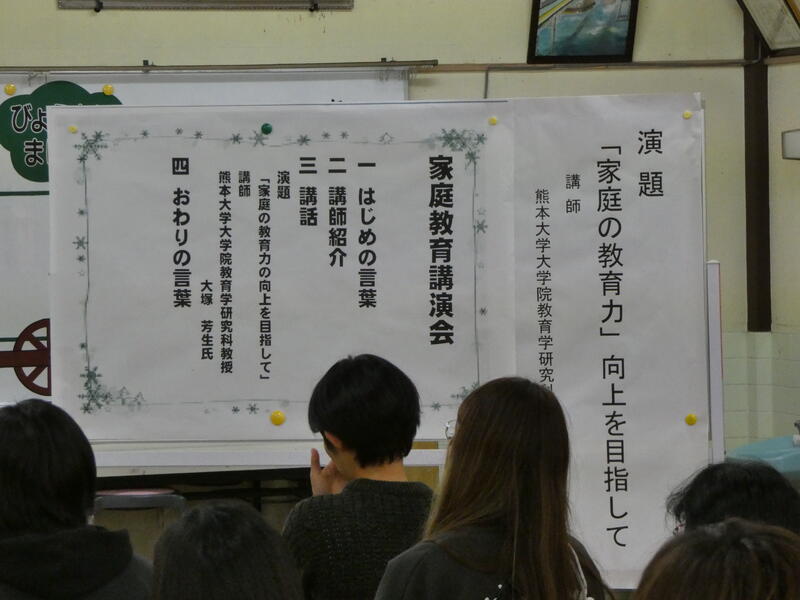 演題
「家庭の教育力」向上を目指して
講師
熊本大学大学院教育学研究
家庭教育講演会
一 はじめの言葉
二 講師紹介
三 講話
演題
「家庭の教育力の向上を目指して」
講師
熊本大学大学院教育学研究科教授
大塚 芳生氏
四 おわりの言葉
びよ
ま